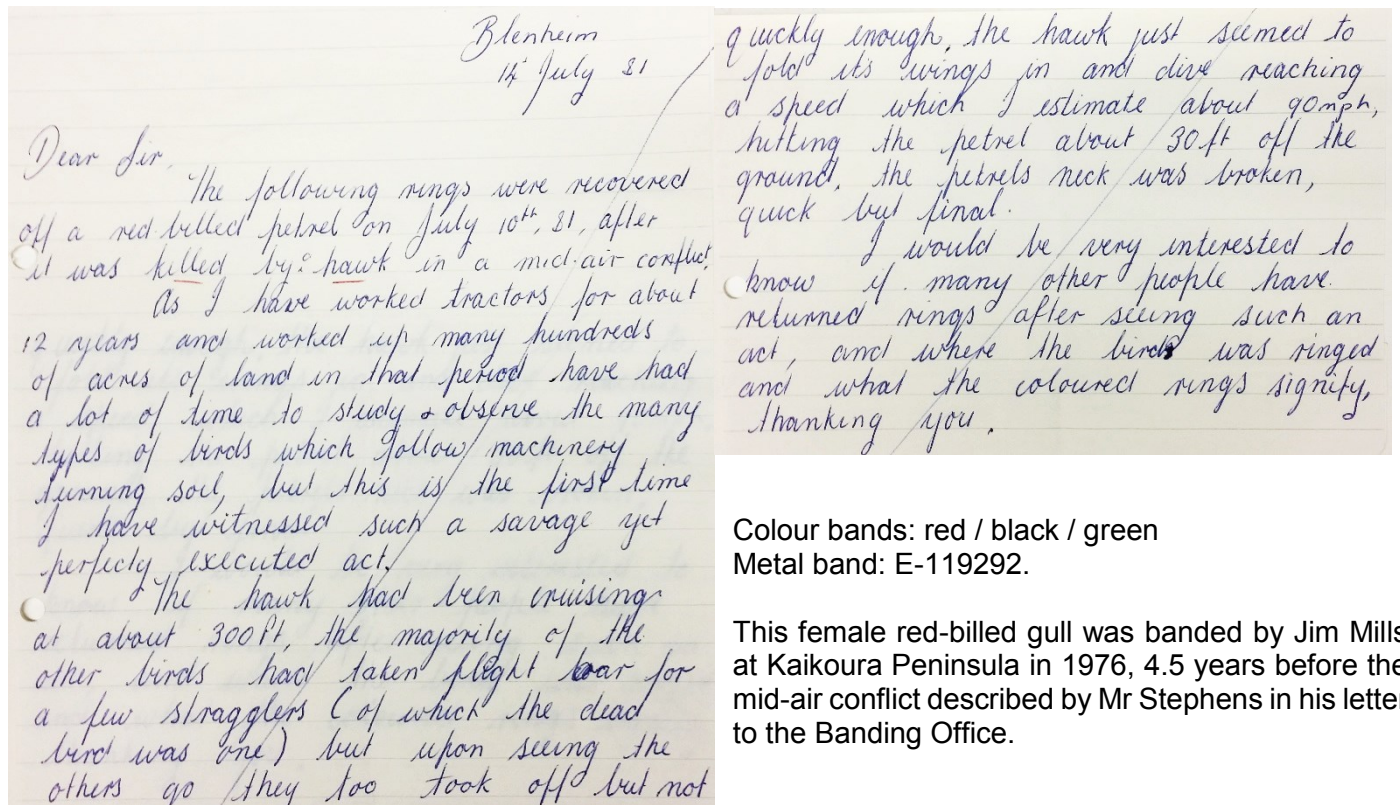 Blenheim
14 July 81
Dear Sir,
The following rings were recovered
off a red billed petrel on July 10th, 81, after
it was killed by hawk in a mid-air conflict.
As I have worked tractors for about
12 years and worked up many hundreds
of acres of land in that period have had
a lot of time to study & observe the many
types of birds which follow machinery
turning soil, but this is the first time
I have witnessed such a savage yet
perfecly executed act.
The hawk had been cruising
at about 300ft, the majority of the
other birds had taken flight bar for
a few stragglers (of which the dead
bird was one) but upon seeing the
others go they too took off but not
quickly enough, the hawk just seemed to
fold its wings in and dive reaching
a speed which I estimate about 90mph,
hitting the petrel about 30ft off the
ground, the petrels neck was broken,
quick but final.
I would be very interested to
know if many other people have
returned rings after seeing such an
act, and where the bird was ringed
and what the coloured rings signify,
thanking you.
Colour bands: red / black / green
Metal band: E-119292.
This female red-billed gull was banded by Jim Mills
at Kaikoura Peninsula in 1976, 4.5 years before the
mid-air conflict described by Mr Stephens in his letter
to the Banding Office.